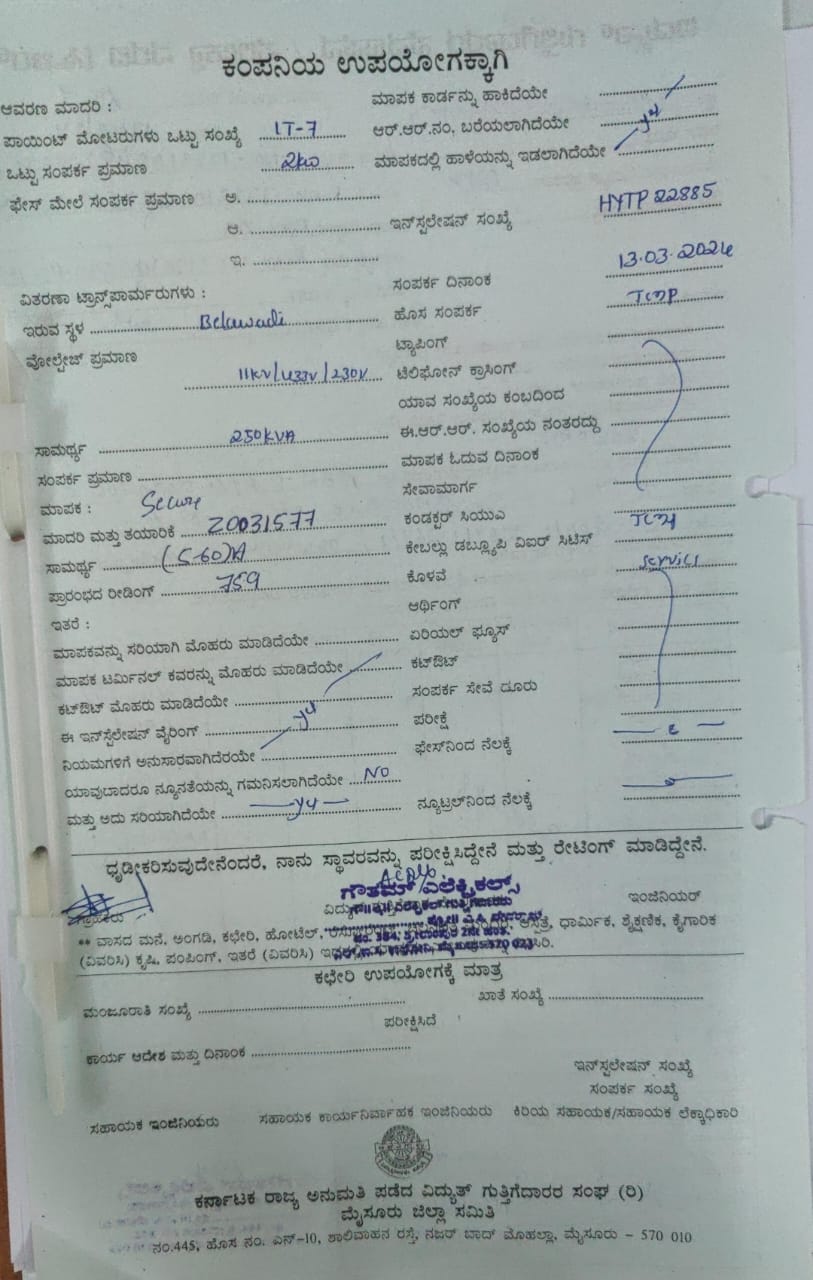 ಕಂಪನಿಯ ಉಪಯೋಗಕ್ಕಾಗಿ
ಆವರಣ ಮಾದರಿ : ಮಾಪಕ ಕಾರ್ಡನ್ನು ಹಾಕಿದೆಯೇ
ಪಾಯಿಂಟ್ ಮೋಟರುಗಳು ಒಟ್ಟು ಸಂಖ್ಯೆ LT-7 ಆರ್.ಆರ್.ನಂ, ಬರೆಯಲಾಗಿದೆಯೇ
ಒಟ್ಟು ಸಂಪರ್ಕ ಪ್ರಮಾಣ 2kw ಮಾಪಕದಲ್ಲಿ ಹಾಳೆಯನ್ನು ಇಡಲಾಗಿದೆಯೇ
ಫೇಸ್ ಮೇಲೆ ಸಂಪರ್ಕ ಪ್ರಮಾಣ ಅ.
ಆ. ಇನ್‌ಸ್ಟಲೇಷನ್ ಸಂಖ್ಯೆ HYTP 22885
ಇ.
ಸಂಪರ್ಕ ದಿನಾಂಕ 13.03.2024
ವಿತರಣಾ ಟ್ರಾನ್ಸ್‌ಪಾರ್ಮರುಗಳು :
ಇರುವ ಸ್ಥಳ Belawadi ಹೊಸ ಸಂಪರ್ಕ Temp
ವೋಲ್ಟೇಜ್ ಪ್ರಮಾಣ ಟ್ಯಾಪಿಂಗ್
11kV/433V/230V ಟೆಲಿಫೋನ್ ಕ್ರಾಸಿಂಗ್
ಯಾವ ಸಂಖ್ಯೆಯ ಕಂಬದಿಂದ
ಸಾಮರ್ಥ್ಯ 250KVA ಈ.ಆರ್.ಆರ್. ಸಂಖ್ಯೆಯ ನಂತರದ್ದು
ಸಂಪರ್ಕ ಪ್ರಮಾಣ ಮಾಪಕ ಓದುವ ದಿನಾಂಕ
ಮಾಪಕ : Secure ಸೇವಾಮಾರ್ಗ
ಮಾದರಿ ಮತ್ತು ತಯಾರಿಕೆ Z0031577 ಕಂಡಕ್ಟರ್ ಸಿಯುಎ
ಸಾಮರ್ಥ್ಯ (5-60)A ಕೇಬಲ್ಲು ಡಬ್ಲ್ಯೂಪಿ ವಿಐರ್ ಸಿಟಿಸ್
ಪ್ರಾರಂಭದ ರೀಡಿಂಗ್ 759 ಕೊಳವೆ service
ಇತರೆ : ಆರ್ಥಿಂಗ್
ಮಾಪಕವನ್ನು ಸರಿಯಾಗಿ ಮೊಹರು ಮಾಡಿದೆಯೇ ಏರಿಯಲ್ ಫ್ಯೂಸ್
ಮಾಪಕ ಟರ್ಮಿನಲ್ ಕವರನ್ನು ಮೊಹರು ಮಾಡಿದೆಯೇ ಕಟ್‌ಔಟ್
ಕಟ್‌ಔಟ್ ಮೊಹರು ಮಾಡಿದೆಯೇ ಸಂಪರ್ಕ ಸೇವೆ ದೂರು
ಈ ಇನ್‌ಸ್ಟೆಲೇಷನ್ ವೈರಿಂಗ್ ಪರೀಕ್ಷೆ
ನಿಯಮಗಳಿಗೆ ಅನುಸಾರವಾಗಿದೆರಯೇ ಫೇಸ್‌ನಿಂದ ನೆಲಕ್ಕೆ
ಯಾವುಬಾದರೂ ನ್ಯೂನತೆಯನ್ನು ಗಮನಿಸಲಾಗಿದೆಯೇ NO
ಮತ್ತು ಅದು ಸರಿಯಾಗಿದೆಯೇ ನ್ಯೂಟ್ರಲ್‌ನಿಂದ ನೆಲಕ್ಕೆ
ಧೃಡೀಕರಿಸುವುದೇನೆಂದರೆ, ನಾನು ಸ್ಥಾವರವನ್ನು ಪರೀಕ್ಷಿಸಿದ್ದೇನೆ ಮತ್ತು ರೇಟಿಂಗ್ ಮಾಡಿದ್ದೇನೆ.
ಗೌತಮ್ ಎಲೆಕ್ಟ್ರಿಕಲ್ಸ್
ಇಂಜಿನಿಯರ್
** ವಾಸದ ಮನೆ, ಅಂಗಡಿ, ಕಛೇರಿ, ಹೋಟೆಲ್, ಆಸ್ಪತ್ರೆ, ಧಾರ್ಮಿಕ, ಶೈಕ್ಷಣಿಕ, ಕೈಗಾರಿಕ
(ವಿವರಿಸಿ) ಕೃಷಿ, ಪಂಪಿಂಗ್, ಇತರೆ (ವಿವರಿಸಿ)
ಕಛೇರಿ ಉಪಯೋಗಕ್ಕೆ ಮಾತ್ರ
ಮಂಜೂರಾತಿ ಸಂಖ್ಯೆ ಖಾತೆ ಸಂಖ್ಯೆ
ಪರೀಕ್ಷಿಸಿದೆ
ಕಾರ್ಯ ಆದೇಶ ಮತ್ತು ದಿನಾಂಕ
ಇನ್‌ಸ್ಟಲೇಷನ್ ಸಂಖ್ಯೆ
ಸಂಪರ್ಕ ಸಂಖ್ಯೆ
ಸಹಾಯಕ ಇಂಜಿನಿಯರು ಸಹಾಯಕ ಕಾರ್ಯನಿರ್ವಾಹಕ ಇಂಜಿನಿಯರು ಕಿರಿಯ ಸಹಾಯಕ/ಸಹಾಯಕ ಲೆಕ್ಕಾಧಿಕಾರಿ
ಕರ್ನಾಟಕ ರಾಜ್ಯ ಅನುಮತಿ ಪಡೆದ ವಿದ್ಯುತ್ ಗುತ್ತಿಗೆದಾರರ ಸಂಘ (ರಿ)
ಮೈಸೂರು ಜಿಲ್ಲಾ ಸಮಿತಿ
ನಂ.445, ಹೊಸ ನಂ. ಎನ್-10, ಶಾಲಿವಾಹನ ರಸ್ತೆ, ನಜರ್ ಬಾದ್ ಮೊಹಲ್ಲಾ, ಮೈಸೂರು - 570 010